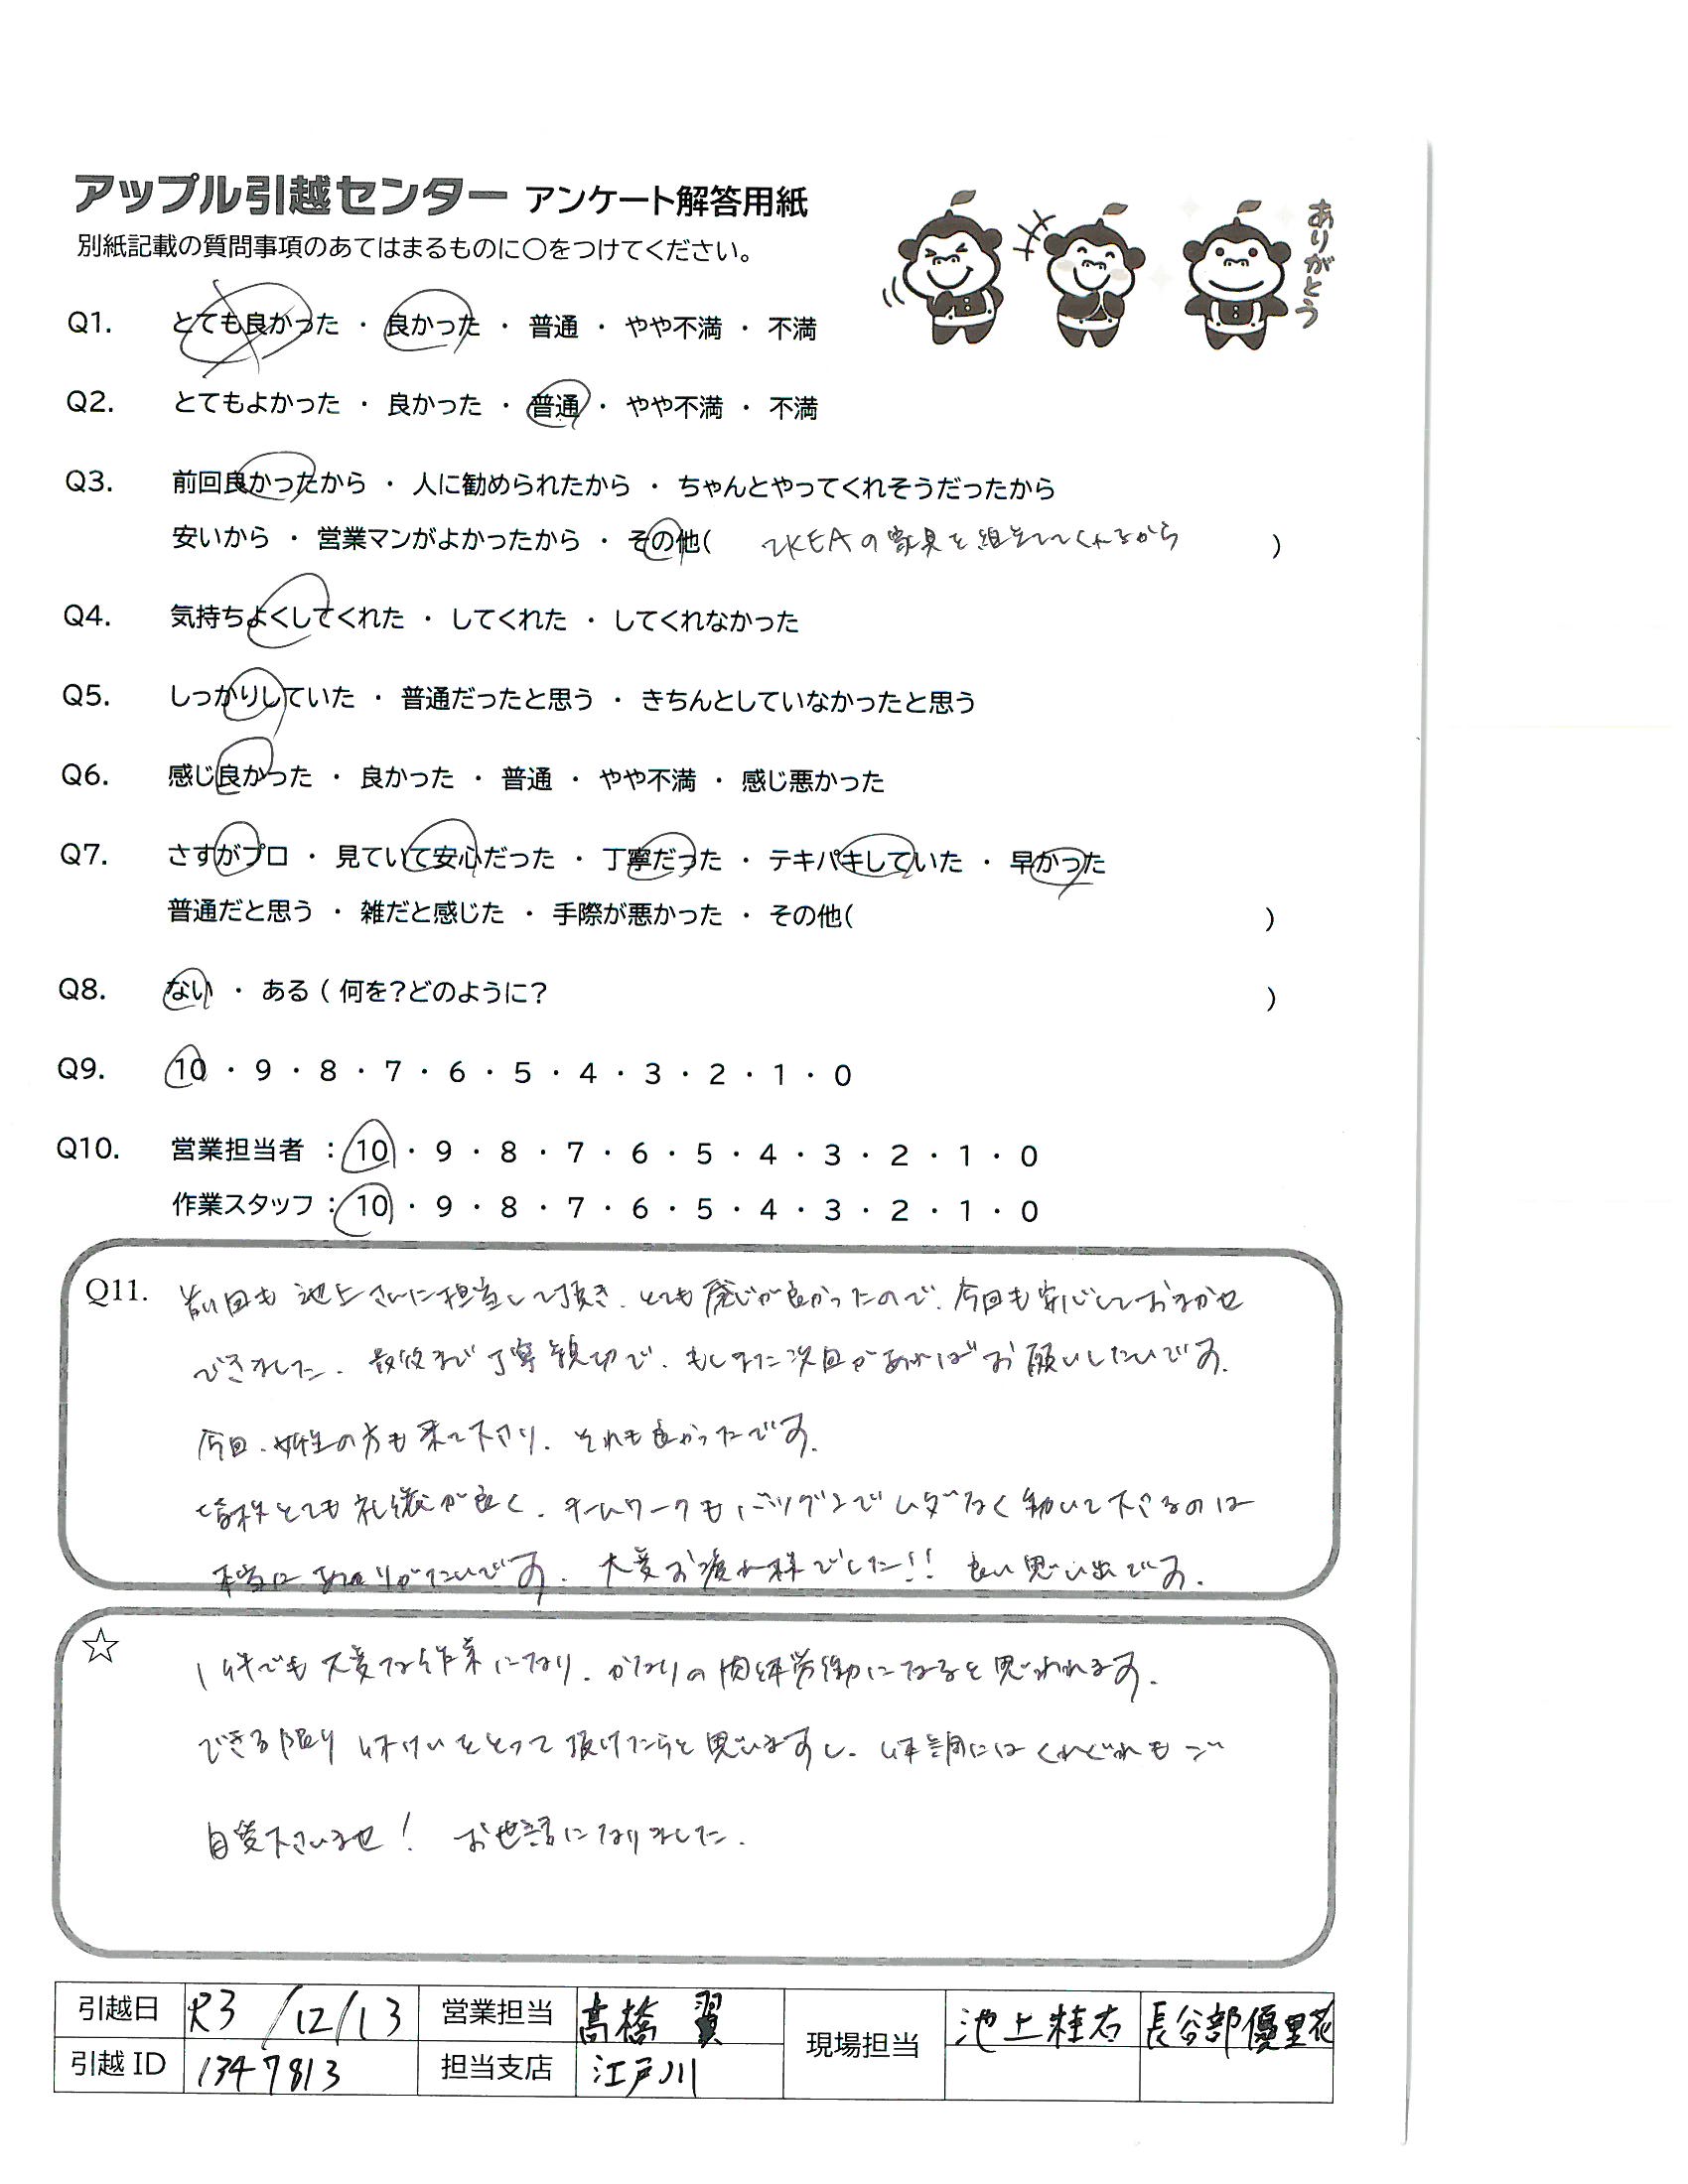 アップル引越センター アンケート解答用紙
別紙記載の質問事項のあてはまるものに〇をつけてください。
ありがとう
Q1. とても良かった ・ 良かった ・ 普通 ・ やや不満 ・ 不満
Q2. とてもよかった ・ 良かった ・ 普通 ・ やや不満 ・ 不満
Q3. 前回良かったから ・ 人に勧められたから ・ ちゃんとやってくれそうだったから
安いから ・ 営業マンがよかったから ・ その他( IKEAの家具を組立ててくれるから )
Q4. 気持ちよくしてくれた ・ してくれた ・ してくれなかった
Q5. しっかりしていた ・ 普通だったと思う ・ きちんとしていなかったと思う
Q6. 感じ良かった ・ 良かった ・ 普通 ・ やや不満 ・ 感じ悪かった
Q7. さすがプロ ・ 見ていて安心だった ・ 丁寧だった ・ テキパキしていた ・ 早かった
普通だと思う ・ 雑だと感じた ・ 手際が悪かった ・ その他( )
Q8. ない ・ ある ( 何を?どのように? )
Q9. 10 ・ 9 ・ 8 ・ 7 ・ 6 ・ 5 ・ 4 ・ 3 ・ 2 ・ 1 ・ 0
Q10. 営業担当者 : 10 ・ 9 ・ 8 ・ 7 ・ 6 ・ 5 ・ 4 ・ 3 ・ 2 ・ 1 ・ 0
作業スタッフ : 10 ・ 9 ・ 8 ・ 7 ・ 6 ・ 5 ・ 4 ・ 3 ・ 2 ・ 1 ・ 0
Q11. 前回も池上さんに担当して頂き、とても感じが良かったので、今回も安心しておまかせ
できました。最後まで丁寧親切で、もしまた次回があればお願いしたいです。
今回、女性の方も来て下さり、それも良かったです。
皆様とても礼儀が良く、チームワークもバツグンでムダなく動いて下さるのは
本当にありがたいです。大変お疲れ様でした!! 良い思い出です。
☆ 1件でも大変な作業になり、かなりの肉体労働になると思われます。
できる限り休けいをとって頂けたらと思いますし、体調にはくれぐれもご
自愛下さいませ! お世話になりました。
引越日 R3/12/13 営業担当 髙橋 翼 現場担当 池上桂右 長谷部優里花
引越ID 1347813 担当支店 江戸川